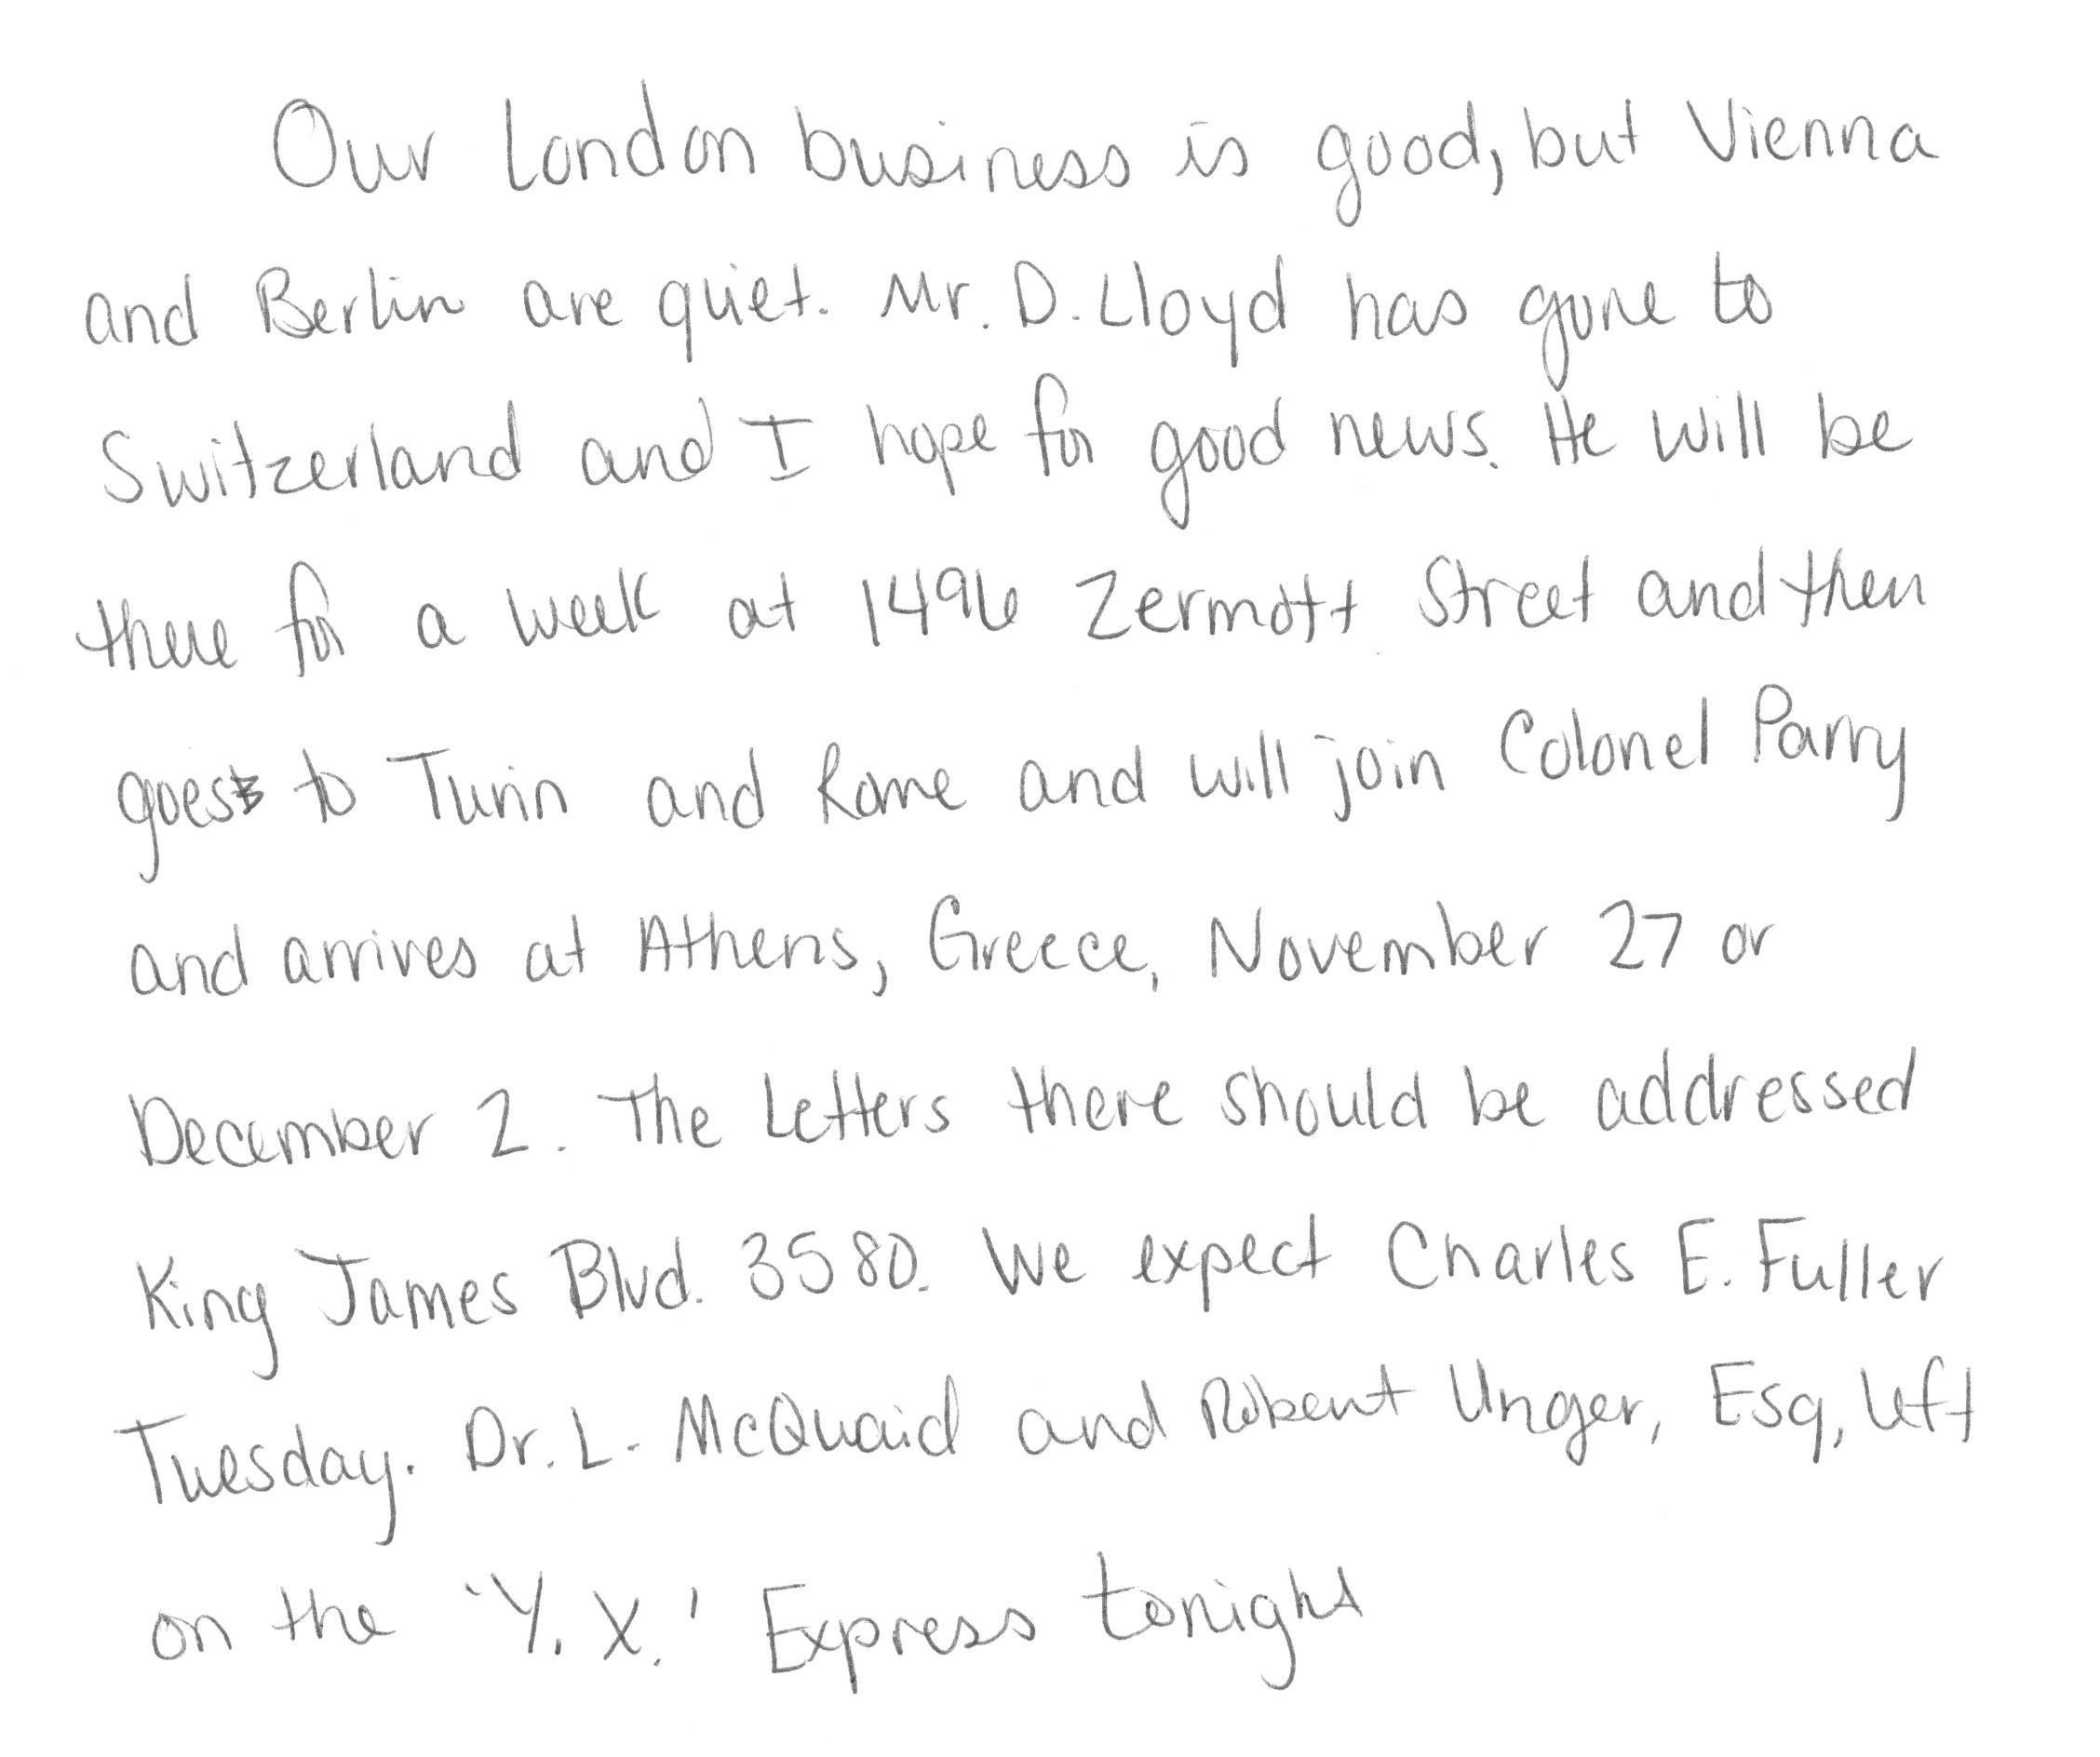 Our London business is good, but Vienna
and Berlin are quiet. Mr. D. Lloyd has gone to
Switzerland and I hope for good news. He will be
there for a week at 1496 Zermott Street and then
goes to Turin and Rome and will join Colonel Parry
and arrives at Athens, Greece, November 27 or
December 2. The Letters there should be addressed
King James Blvd. 3580. We expect Charles E. Fuller
Tuesday. Dr. L. McQuaid and Robert Unger, Esq, left
on the 'Y. X.' Express tonight